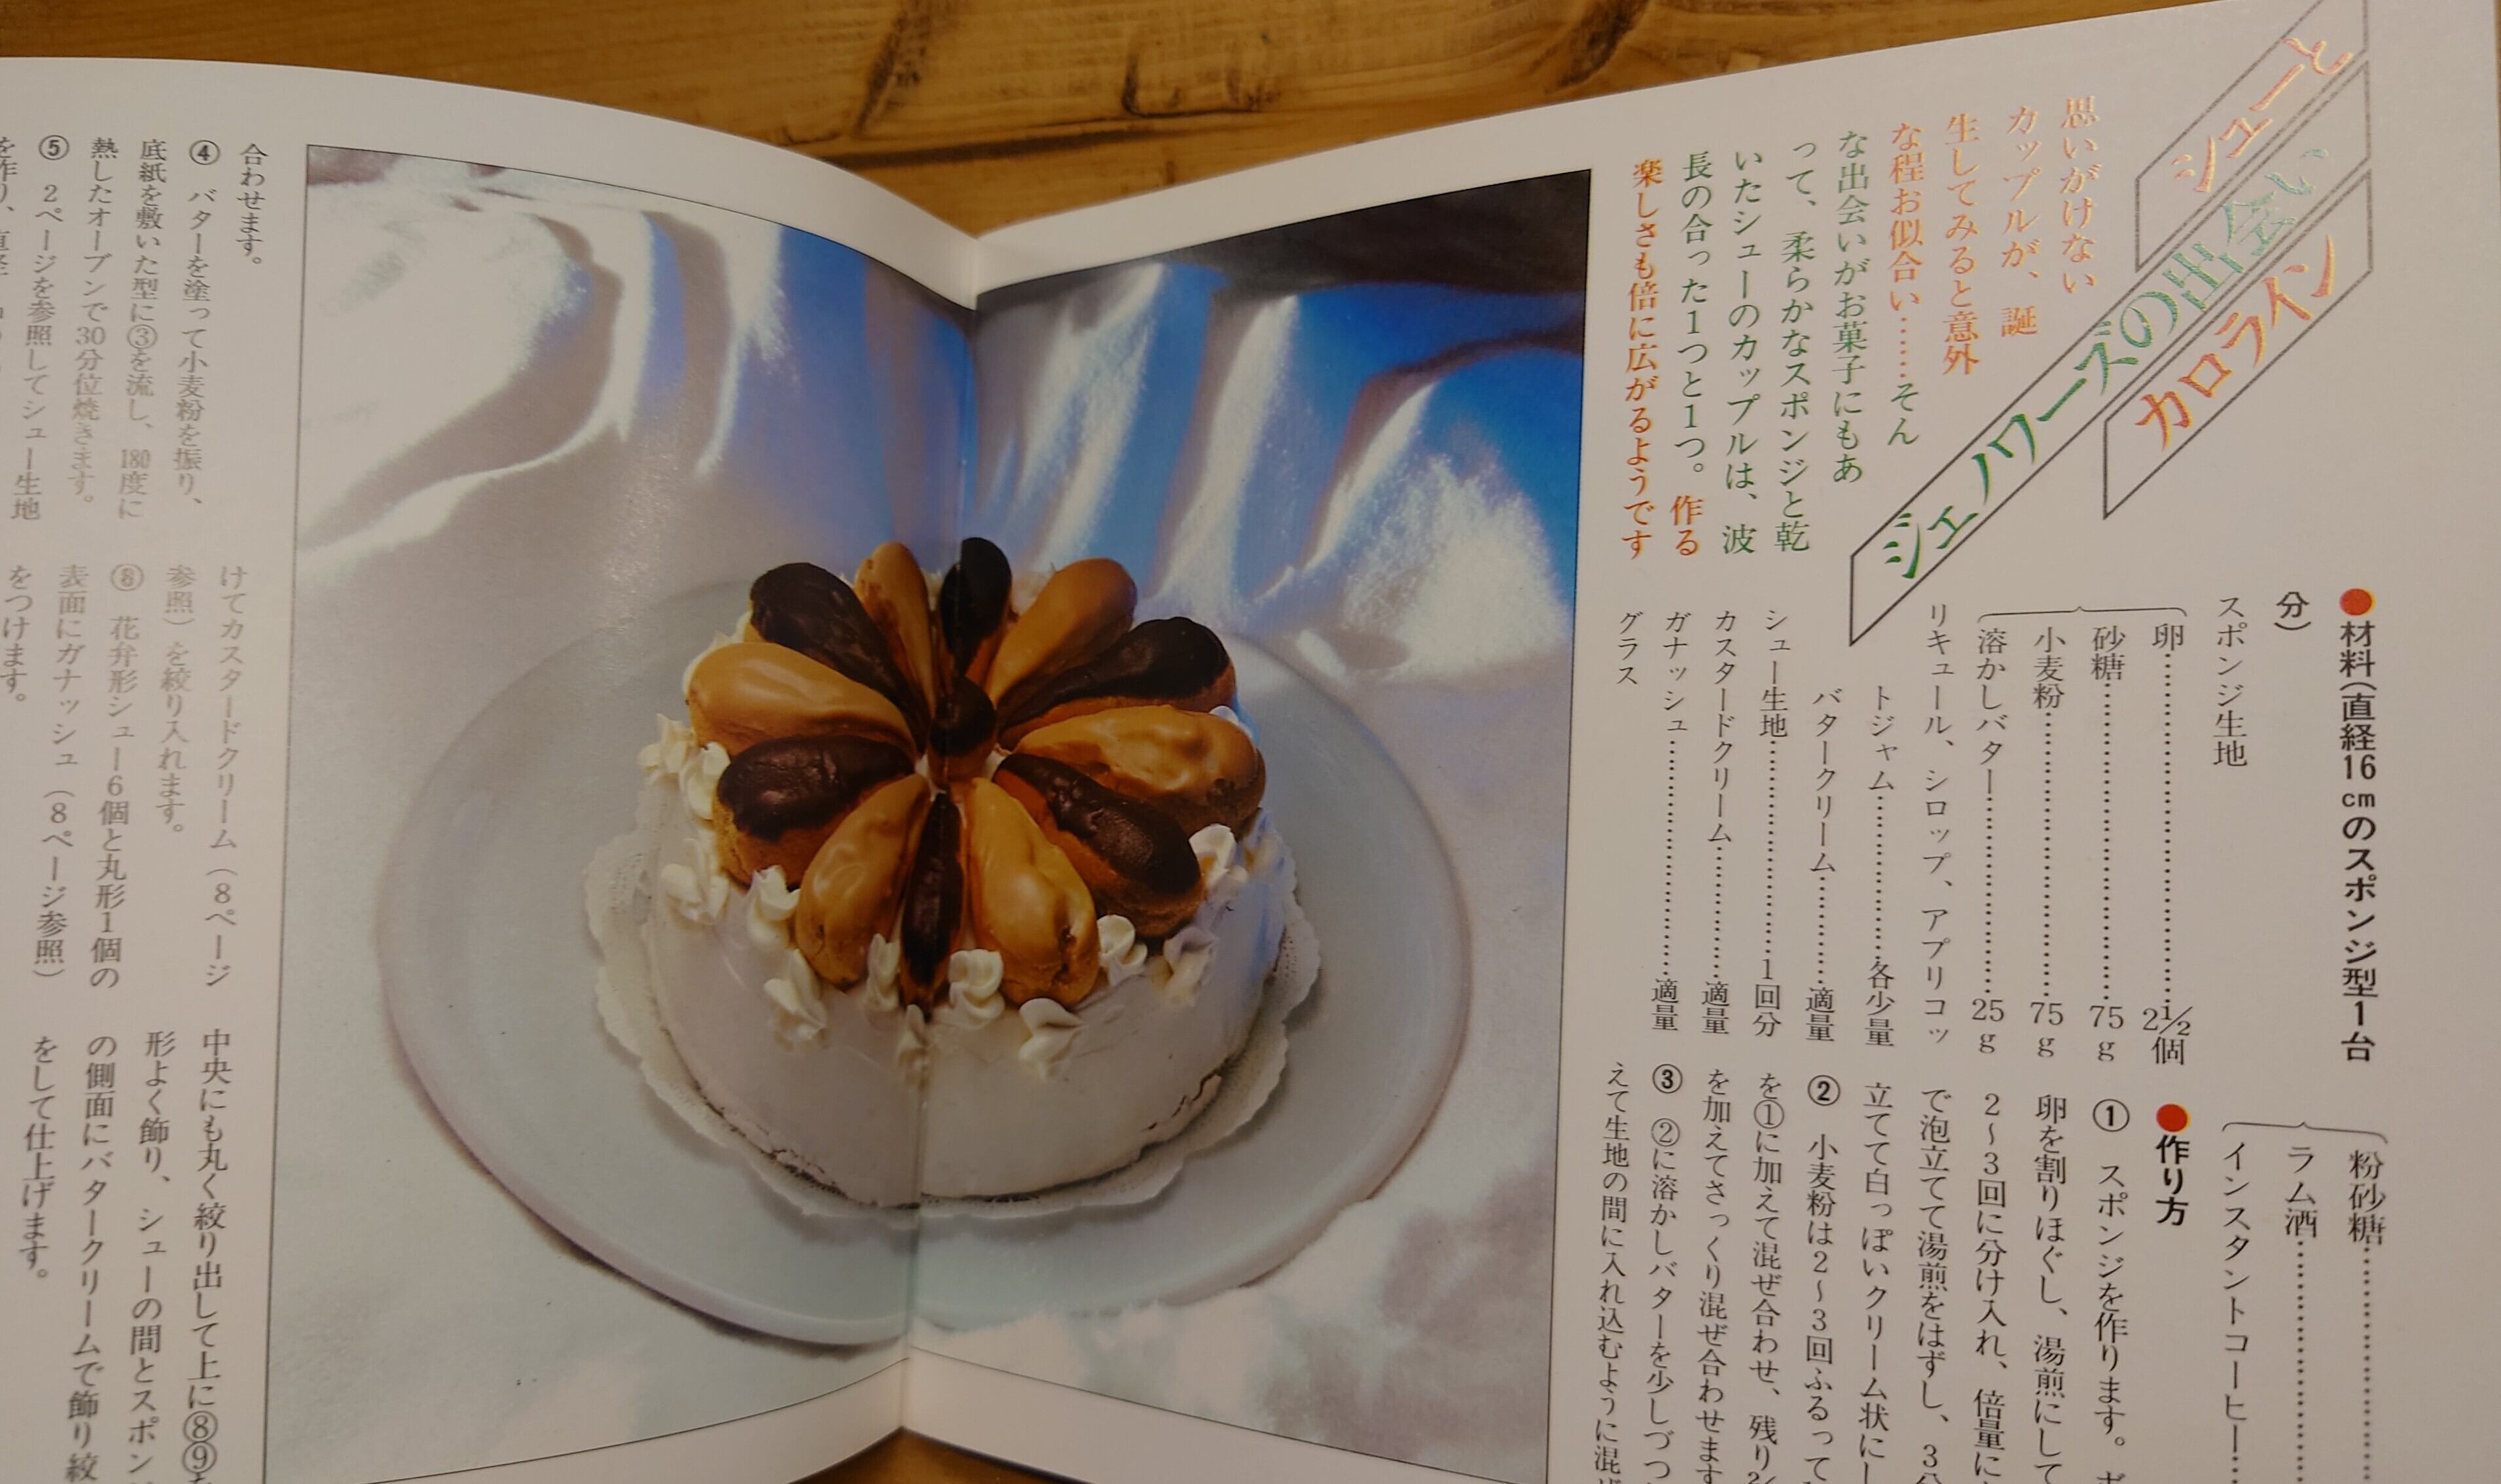 シューと
ジェノワーズの出会い
カロライン
思いがけない
カップルが、誕
生してみると意外
な程お似合い……そん
な出会いがお菓子にもあ
って、柔らかなスポンジと乾
いたシューのカップルは、波
長の合った1つと1つ。作る
楽しさも倍に広がるようです
●材料(直経16cmのスポンジ型1台
分)
スポンジ生地
卵……2½個
砂糖……75g
小麦粉……75g
溶かしバター……25g
リキュール、シロップ、アプリコッ
トジャム……各少量
バタークリーム……適量
シュー生地……1回分
カスタードクリーム……適量
ガナッシュ……適量
グラス
粉砂糖……
ラム酒……
インスタントコーヒー……
●作り方
① スポンジを作ります。ボ
卵を割りほぐし、湯煎にして
2～3回に分け入れ、倍量に
で泡立てて湯煎をはずし、3分
立てて白っぽいクリーム状にし
② 小麦粉は2～3回ふるって
を①に加えて混ぜ合わせ、残り
を加えてさっくり混ぜ合わせます
③ ②に溶かしバターを少しづつ
えて生地の間に入れ込むように混ぜ
合わせます。
④ バターを塗って小麦粉を振り、
底紙を敷いた型に③を流し、180度に
熱したオーブンで30分位焼きます。
⑤ 2ページを参照してシュー生地
を作り、
けてカスタードクリーム(8ページ
参照)を絞り入れます。
⑧ 花弁形シュー6個と丸形1個の
表面にガナッシュ(8ページ参照)
をつけます。
中央にも丸く絞り出して上に⑧⑨を
形よく飾り、シューの間とスポン
の側面にバタークリームで飾り絞
をして仕上げます。